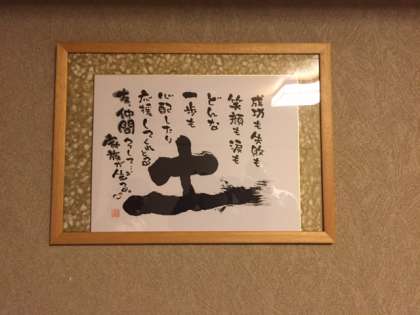 成功も失敗も
笑顔も涙も
どんな
一歩も
心配したり
応援してくれる
友、仲間
そして…
家族が
土